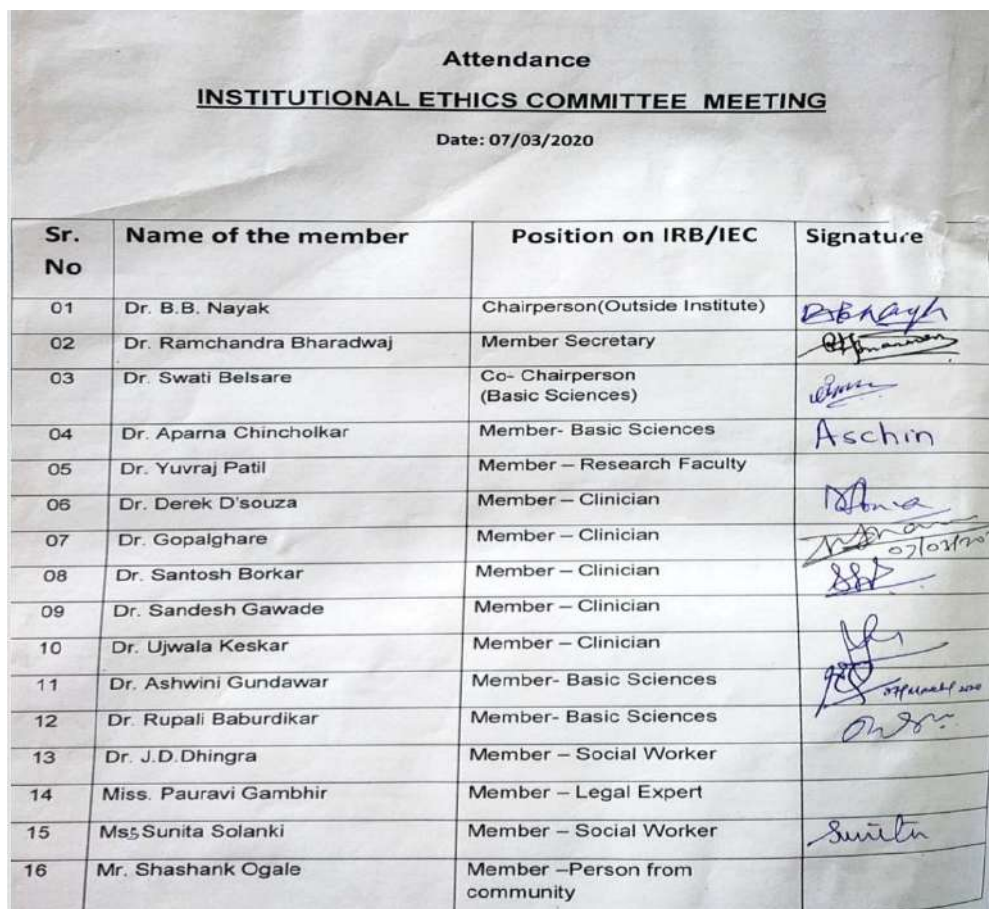 Attendance
INSTITUTIONAL ETHICS COMMITTEE MEETING
Date: 07/03/2020
Sr. No Name of the member Position on IRB/IEC Signature
01 Dr. B.B. Nayak Chairperson(Outside Institute)
02 Dr. Ramchandra Bharadwaj Member Secretary
03 Dr. Swati Belsare Co- Chairperson
(Basic Sciences)
04 Dr. Aparna Chincholkar Member- Basic Sciences Aschin
05 Dr. Yuvraj Patil Member – Research Faculty
06 Dr. Derek D'souza Member – Clinician
07 Dr. Gopalghare Member – Clinician
08 Dr. Santosh Borkar Member – Clinician
09 Dr. Sandesh Gawade Member – Clinician
10 Dr. Ujwala Keskar Member – Clinician
11 Dr. Ashwini Gundawar Member- Basic Sciences
12 Dr. Rupali Baburdikar Member- Basic Sciences
13 Dr. J.D.Dhingra Member – Social Worker
14 Miss. Pauravi Gambhir Member – Legal Expert
15 Sunita Solanki Member – Social Worker
16 Mr. Shashank Ogale Member –Person from
community